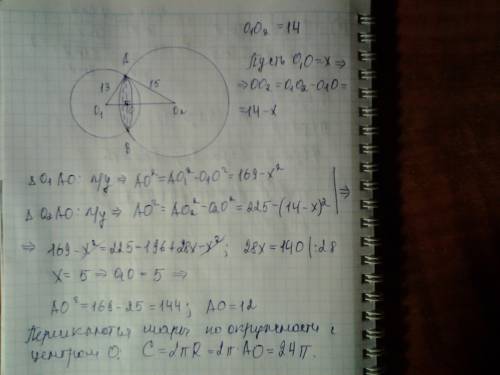 O₁O₂ = 14
A
13
15
O₁
O₂
B
Пусть O₁O = x ⇒
⇒ OO₂ = O₁O₂ - O₁O =
= 14 - x
Δ O₁AO: п/у ⇒ AO² = AO₁² - O₁O² = 169 - x²
Δ O₂AO: п/у ⇒ AO² = AO₂² - O₂O² = 225 - (14 - x)² | ⇒
⇒ 169 - x² = 225 - 196 + 28x - x² ; 28x = 140 | : 28
x = 5 ⇒ O₁O = 5 ⇒
AO² = 169 - 25 = 144; AO = 12
Пересекаются шары по окружности с
центром O. C = 2πR = 2π·AO = 24π.